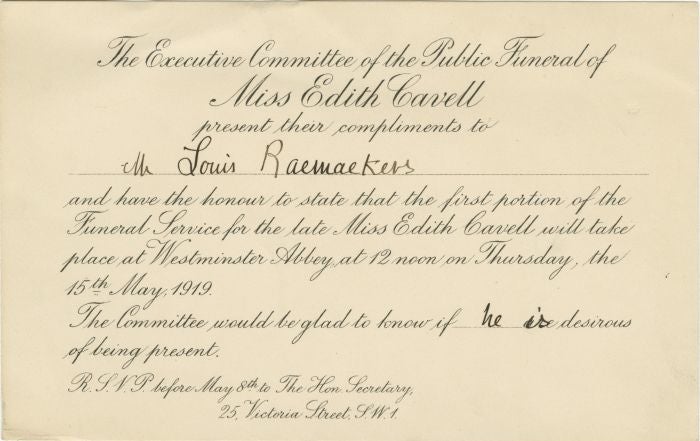 The Executive Committee of the Public Funeral of
Miss Edith Cavell
present their compliments to
Mr Louis Raemaekers
and have the honour to state that the first portion of the
Funeral Service for the late Miss Edith Cavell will take
place, at Westminster Abbey, at 12 noon, on Thursday, the
15th May, 1919.
The Committee would be glad to know if he is desirous
of being present.
R.S.V.P. before May 8th to The Hon. Secretary,
25, Victoria Street, S.W.1.